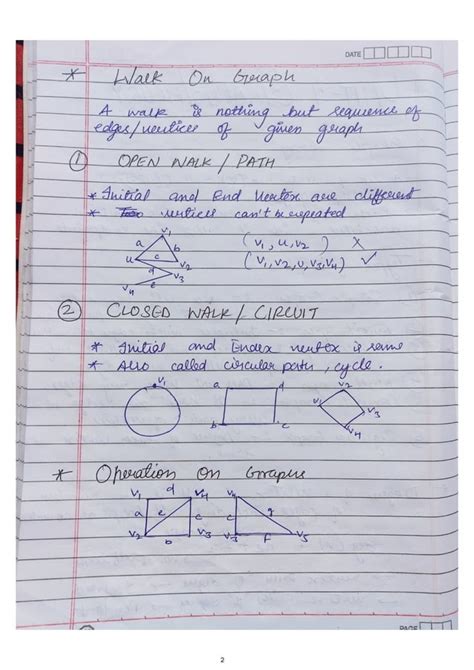 DATE
* Walk On Graph
A walk is nothing but sequence of
edges/vertices of given graph
① OPEN WALK / PATH
* Initial and End Vertex are different
* vertices can't be repeated
v1
a b
u c v2
d v3
v4 e
(v1, u, v2) ✗
(v1, v2, u, v3, v4) ✓
② CLOSED WALK / CIRCUIT
* Initial and Endex vertex is same
* Also called circular path, cycle.
v1
a d
b c
v2
v1 v3
v4
* Operation On Graphs
v1 d v4 v4
a e c c g
v2 b v3 v3 f v5
PAGE
2